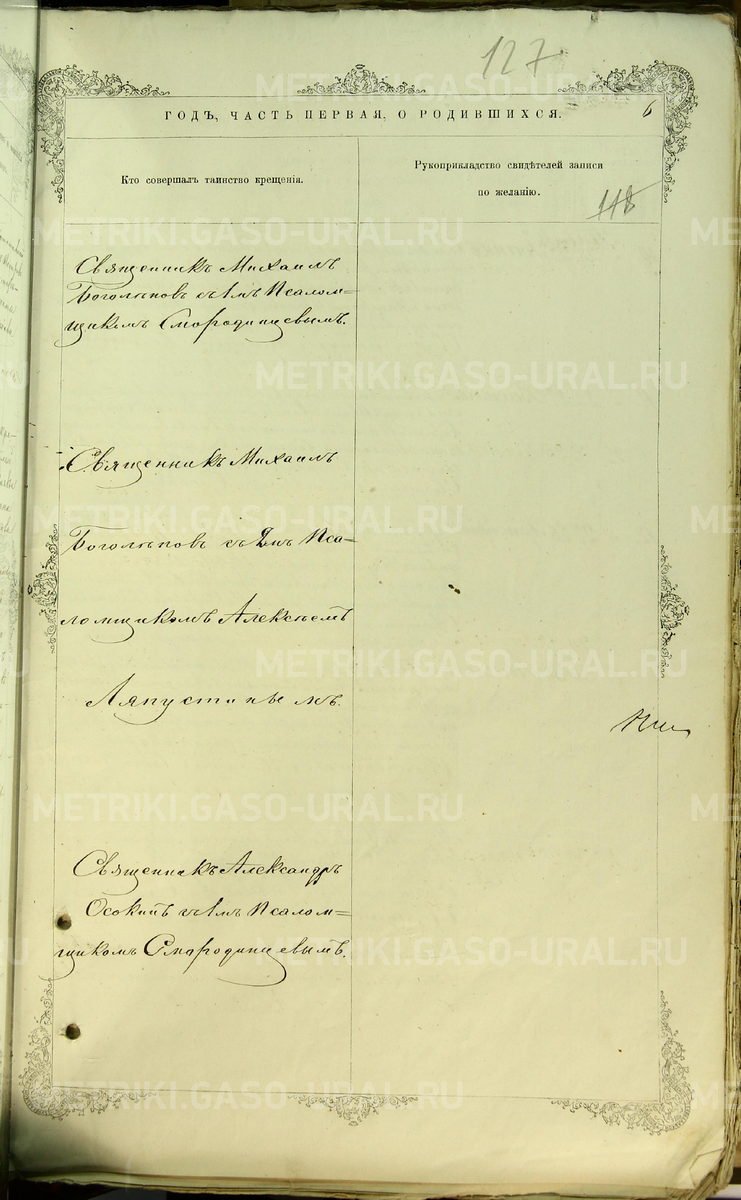 127
ГОДЪ, ЧАСТЬ ПЕРВАЯ, О РОДИВШИХСЯ.
6
Кто совершалъ таинство крещенія.
Рукоприкладство свидѣтелей записи
по желанію.
118
Священникъ Михаилъ
Боголѣповъ съ 1мъ Псалом=
щикомъ Смородинцевымъ.
Священникъ Михаилъ
Боголѣповъ съ 2мъ Пса=
ломщикомъ Алексѣемъ
Ляпустинымъ.
Священникъ Александръ
Осокинъ съ 1мъ Псалом=
щикомъ Смородинцевымъ.
METRIKI.GASO-URAL.RU